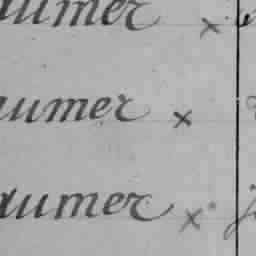 aumer ×
aumer ×
aumer ×